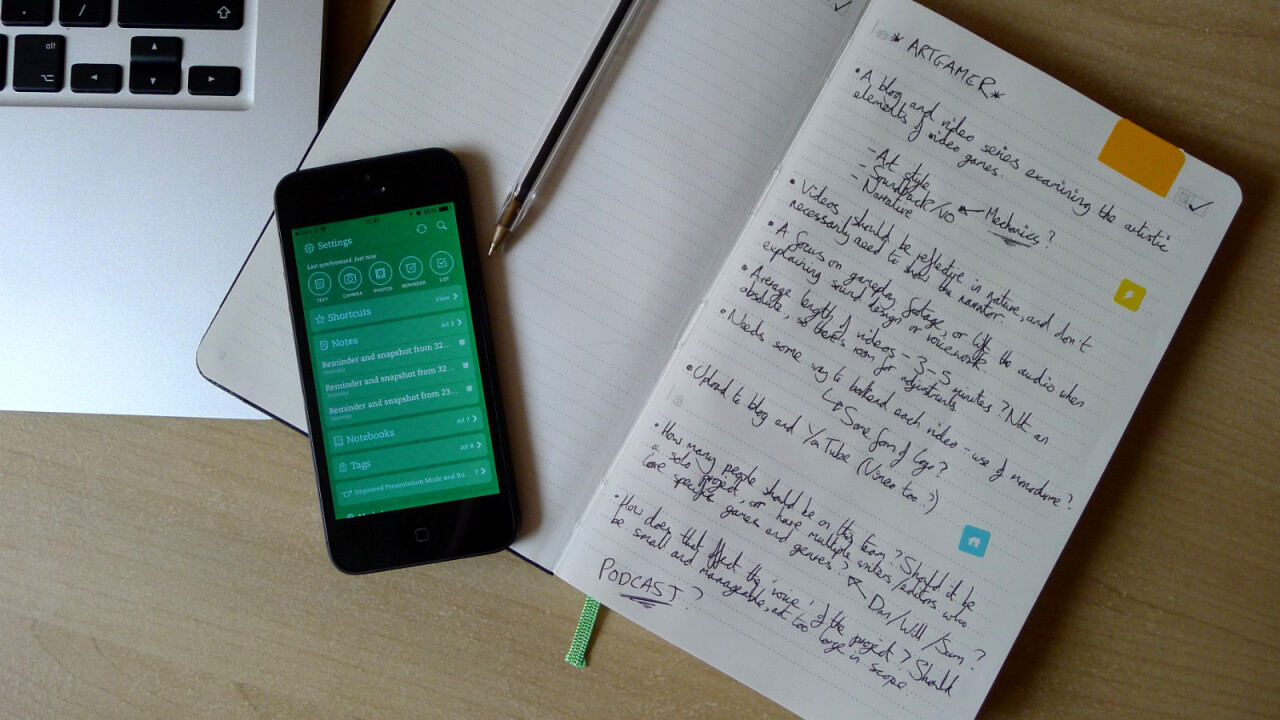 alt
Settings
Last synchronized: Just now
TEXT
CAMERA
PHOTOS
REMINDER
LIST
Shortcuts
View >
Notes
All 3 >
Reminder and snapshot from 32...
Yesterday
Reminder and snapshot from 32...
Yesterday
Reminder and snapshot from 23...
Yesterday
Notebooks
All 7 >
Tags
All 8 >
Improved Presentation Mode and Bu...
* ARTGAMER *
• A blog and video series examining the artistic
elements of video games.
- Art style
- Soundtrack/VO ← Mechanics?
- Narrative
• Videos should be reflective in nature, and don't
necessarily need to show the narrator.
• A focus on gameplay footage, or like the audio when
explaining sound design or voicework
• Average length of videos - 3-5 minutes? Not an
absolute, so there's room for adjustments.
• Needs some way to bookend each video - use of monochrome?
↳ Some form of logo?
• Upload to blog and YouTube (Vimeo too?)
• How many people should be on this team? Should it be
a solo project, or have multiple writers/editors who
love specific games and genres? ↖ Dan/Will/Sam?
• How does that affect the 'voice' of the project? Should
be small and manageable, not too large in scope.
PODCAST?